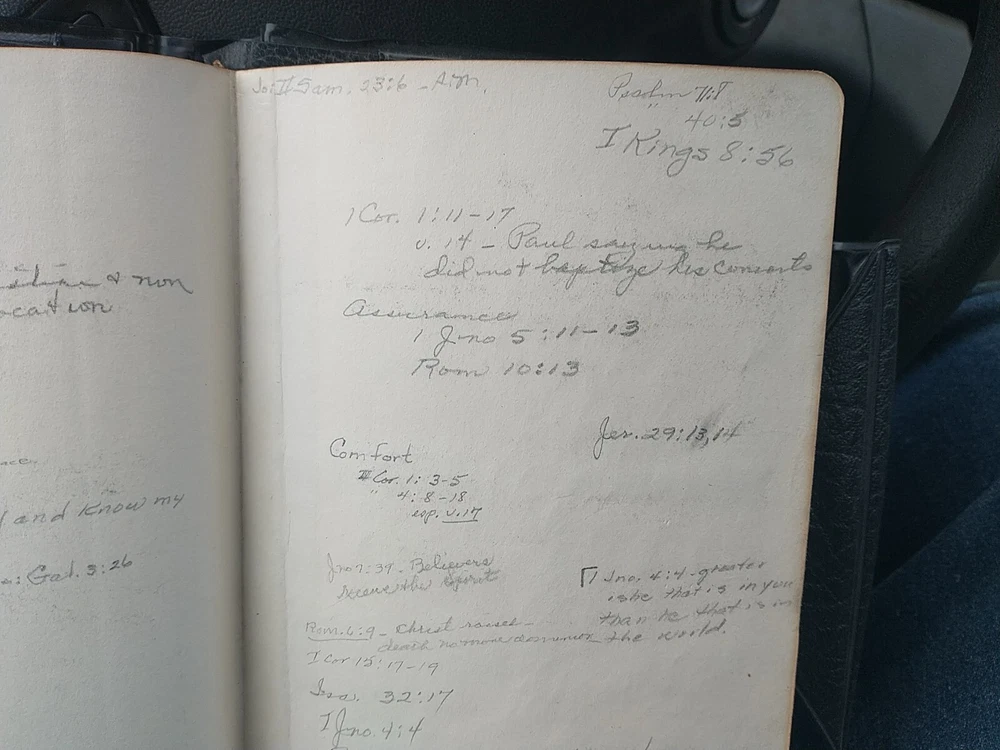 II Sam. 23:6
Psalm 71:8
" 40:5
I Kings 8:56
1 Cor. 1:11-17
v. 14 - Paul saying he
did not baptize his converts
Assurance
1 Jno 5:11-13
Rom 10:13
Jer. 29:13,14
Comfort
II Cor. 1:3-5
" 4:8-18
esp. v.17
Jno 7:39 - Believers
receive the Spirit
1 Jno. 4:4 - greater
is he that is in you
than he that is in
the world.
Rom. 6:9 - Christ raised -
death no more dominion
I Cor 15:17-19
Isa. 32:17
I Jno. 4:4
& non
and know my
Gal. 3:26